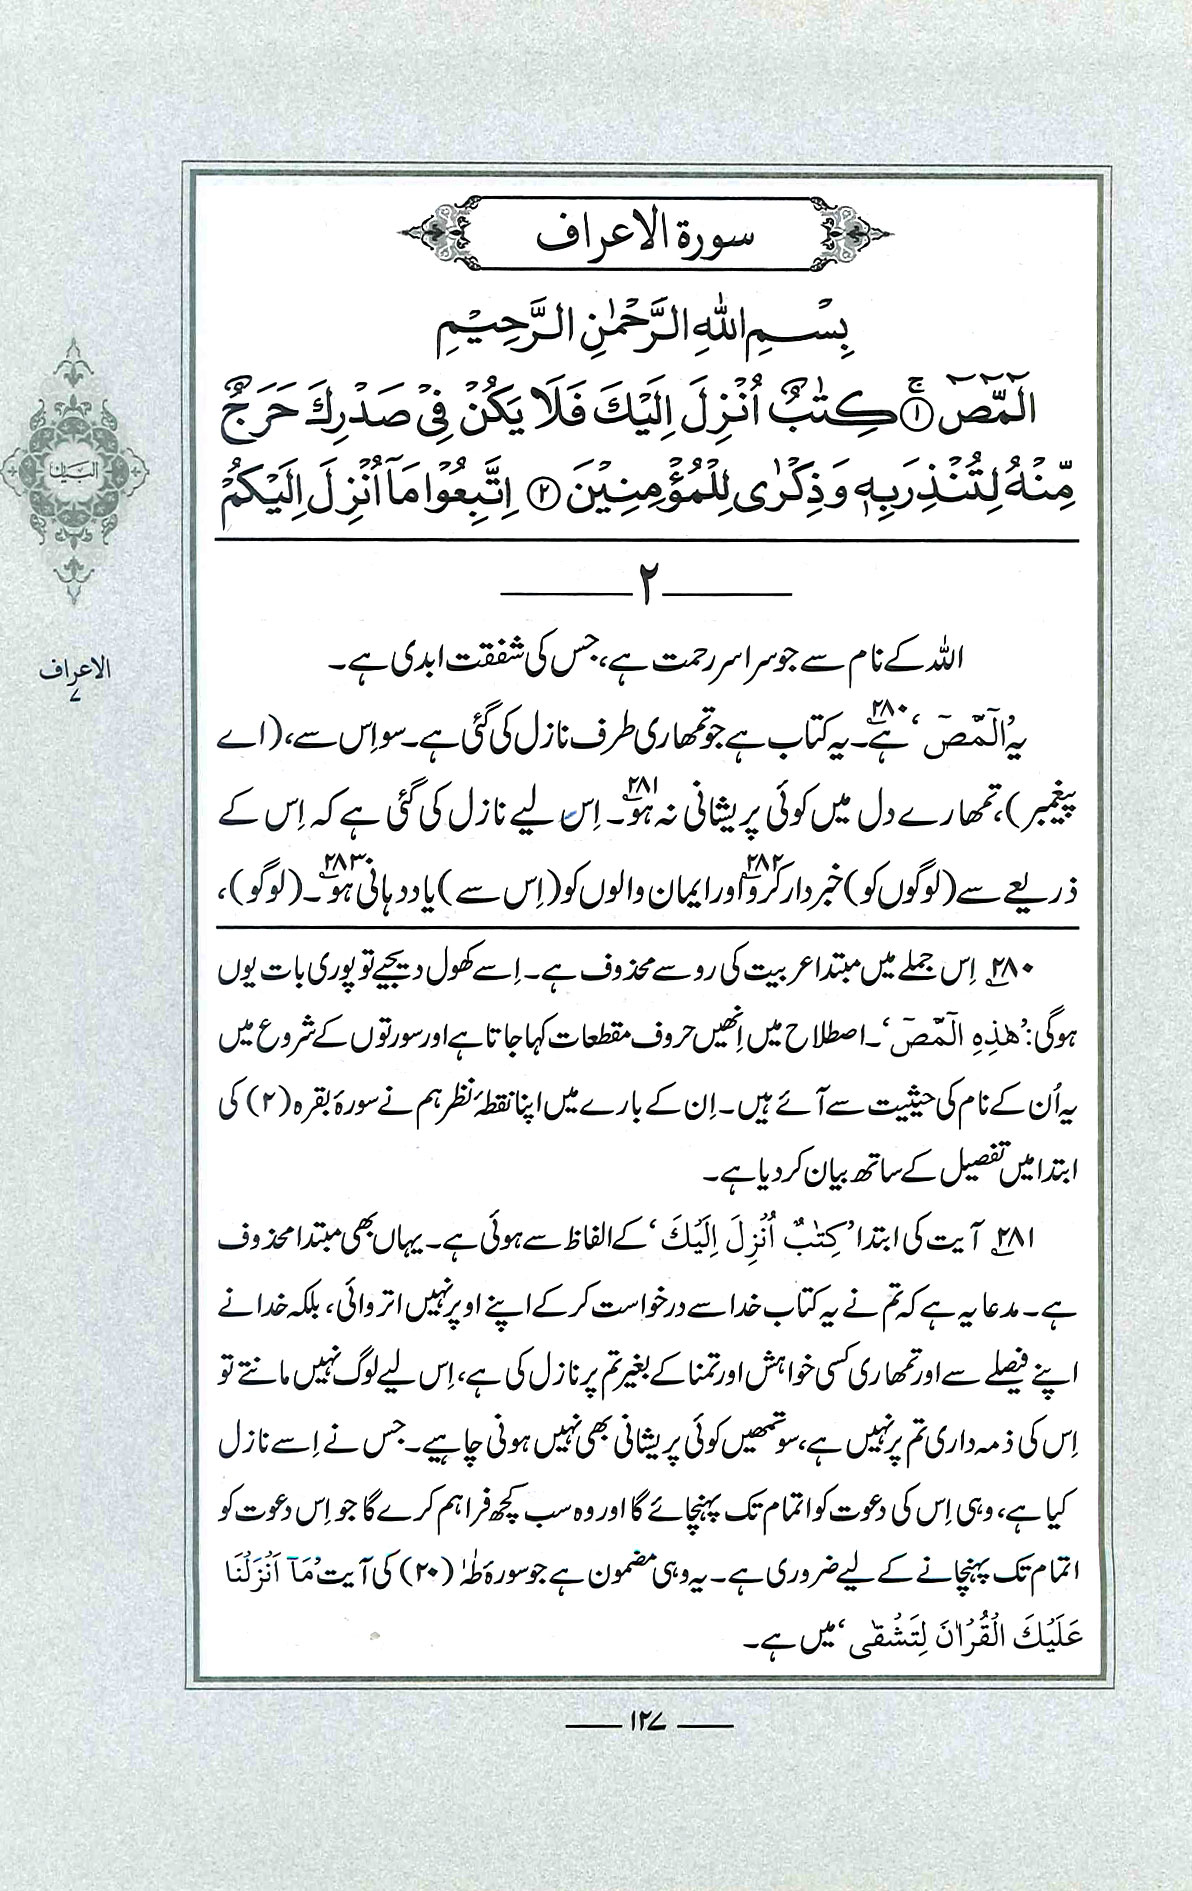 سورة الاعراف
بِسْمِ اللهِ الرَّحْمٰنِ الرَّحِيْمِ
الٓمّٓصٓ ﴿۱﴾ كِتٰبٌ اُنْزِلَ اِلَيْكَ فَلَا يَكُنْ فِيْ صَدْرِكَ حَرَجٌ
مِّنْهُ لِتُنْذِرَ بِهٖ وَذِكْرٰى لِلْمُؤْمِنِيْنَ ﴿۲﴾ اِتَّبِعُوْا مَآ اُنْزِلَ اِلَيْكُمْ
۲
اللہ کے نام سے جو سراسر رحمت ہے، جس کی شفقت ابدی ہے۔
یہ ’الٓمّٓصٓ‘ ہے۲۸۰۔ یہ کتاب ہے جو تمھاری طرف نازل کی گئی ہے۔ سو اِس سے، (اے
پیغمبر)، تمھارے دل میں کوئی پریشانی نہ ہو۲۸۱۔ اِس لیے نازل کی گئی ہے کہ اِس کے
ذریعے سے (لوگوں کو) خبردار کرو۲۸۲ اور ایمان والوں کو (اِس سے) یاددہانی ہو۲۸۳۔ (لوگو)،
۲۸۰ اِس جملے میں مبتدا عربیت کی رو سے محذوف ہے۔ اِسے کھول دیجیے تو پوری بات یوں
ہوگی: ’هٰذِهِ الٓمّٓصٓ‘۔ اصطلاح میں اِنھیں حروف مقطعات کہا جاتا ہے اور سورتوں کے شروع میں
یہ اُن کے نام کی حیثیت سے آئے ہیں۔ اِن کے بارے میں اپنا نقطۂ نظر ہم نے سورۂ بقرہ (۲) کی
ابتدا میں تفصیل کے ساتھ بیان کر دیا ہے۔
۲۸۱ آیت کی ابتدا ’كِتٰبٌ اُنْزِلَ اِلَيْكَ‘ کے الفاظ سے ہوئی ہے۔ یہاں بھی مبتدا محذوف
ہے۔ مدعا یہ ہے کہ تم نے یہ کتاب خدا سے درخواست کر کے اپنے اوپر نہیں اتروائی، بلکہ خدا نے
اپنے فیصلے سے اور تمھاری کسی خواہش اور تمنا کے بغیر تم پر نازل کی ہے، اِس لیے لوگ نہیں مانتے تو
اِس کی ذمہ داری تم پر نہیں ہے، سو تمھیں کوئی پریشانی بھی نہیں ہونی چاہیے۔ جس نے اِسے نازل
کیا ہے، وہی اِس کی دعوت کو اتمام تک پہنچائے گا اور وہ سب کچھ فراہم کرے گا جو اِس دعوت کو
اتمام تک پہنچانے کے لیے ضروری ہے۔ یہ وہی مضمون ہے جو سورۂ طٰہٰ (۲۰) کی آیت ’مَآ اَنْزَلْنَا
عَلَيْكَ الْقُرْاٰنَ لِتَشْقٰٓى‘ میں ہے۔
۱۲۷
البیان
الاعراف
۷